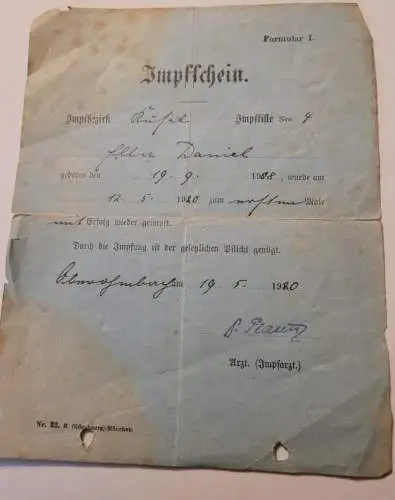 Formular I
Impfschein.
Impfbezirk Kusel Impfliste Nro 4
Daniel
geboren den 19. 9. 1908, wurde am
12. 5. 1920 zum ersten Male
mit Erfolg wieder geimpft.
Durch die Impfung ist der gesetzlichen Pflicht genügt.
am 19. 5. 1920
Arzt. (Impfarzt.)
Nr. 22. R. Oldenbourg, München.